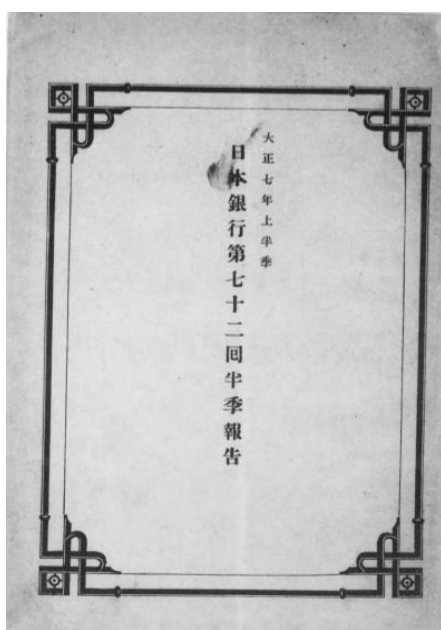 大正七年上半季
日本銀行第七十二回半季報告